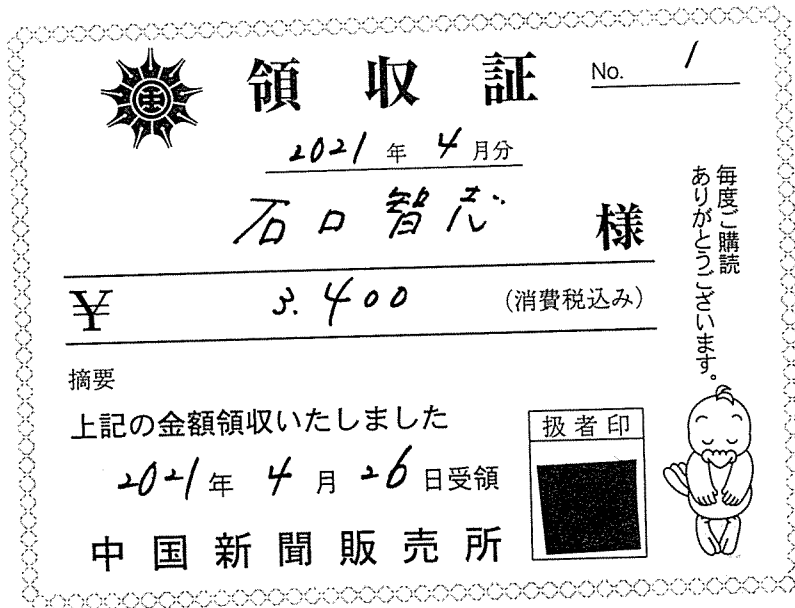 領収証
No. 1
2021年4月分
石口智志様
¥ 3.400 (消費税込み)
摘要
上記の金額領収いたしました
2021年4月26日受領
扱者印
中国新聞販売所
毎度ご購読
ありがとうございます。